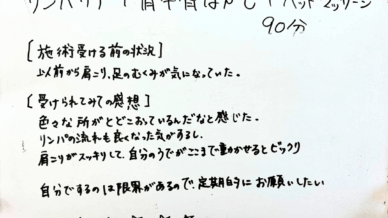 90分
[施術受ける前の状況]
以前から肩こり、足のむくみが気になっていた。
[受けられてみての感想]
色々な所がとどこおっているんだなと感じた。
リンパの流れも良くなった気がするし、
肩こりがスッキリして、自分のうでがここまで動かせるとビックリ
自分でするのは限界があるので、定期的に お願いしたい